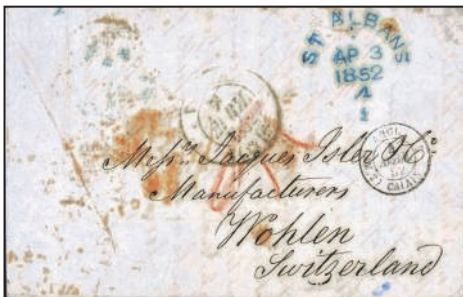 ST ALBANS
AP 3
1852
A
1
Messrs. Jacques Isler & Co
Manufacturers
Wohlen
Switzerland
ANGL.
CALAIS